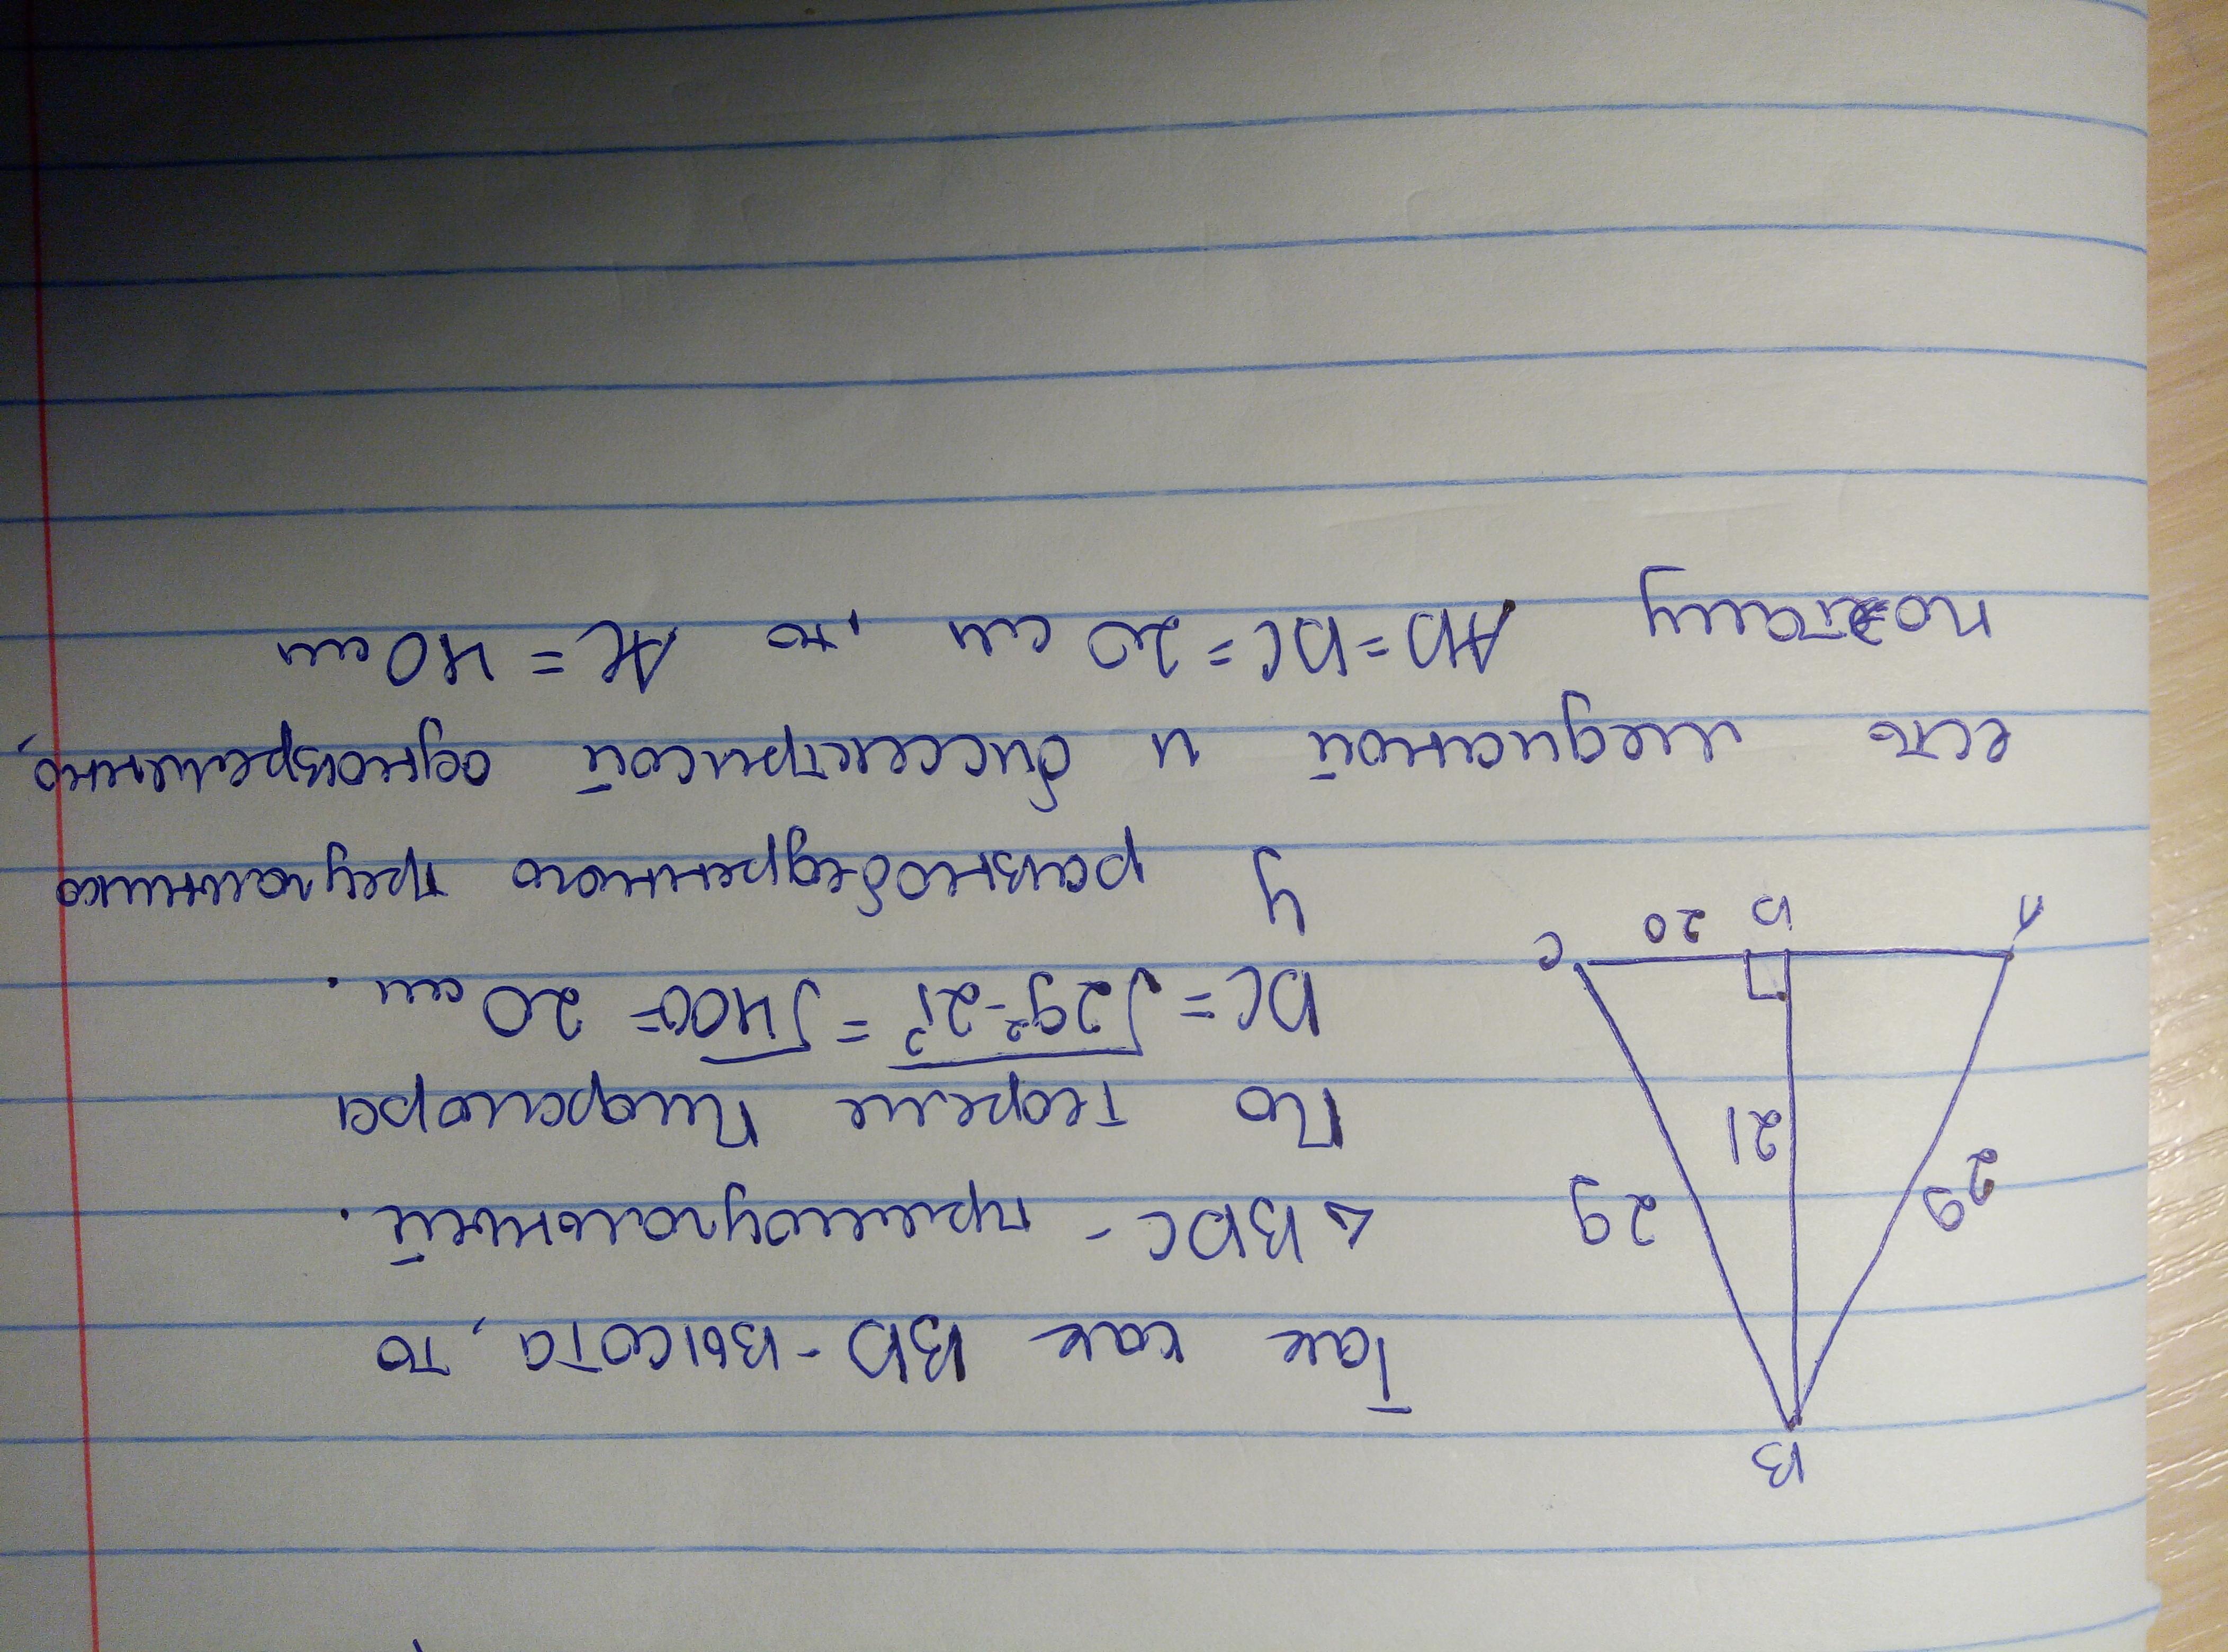 B
Так как BD - высота, то
29
29
△BDC - прямоугольный.
21
По теореме Пифагора
DC = √29²-21² = √400 = 20 см.
A
D
20
C
У равнобедренного треугольника
есть медианой и биссектрисой одновременно,
поэтому AD = DC = 20 см, то AC = 40 см